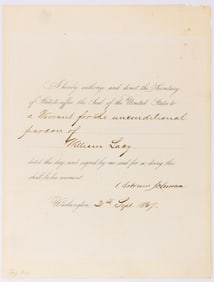 I hereby authorize and direct the Secretary
of State to affix the Seal of the United States to
a Warrant for the unconditional
pardon of
William Lacy
dated this day, and signed by me and for so doing this
shall be his warrant
Andrew Johnson
Washington 2d Sept. 1867.